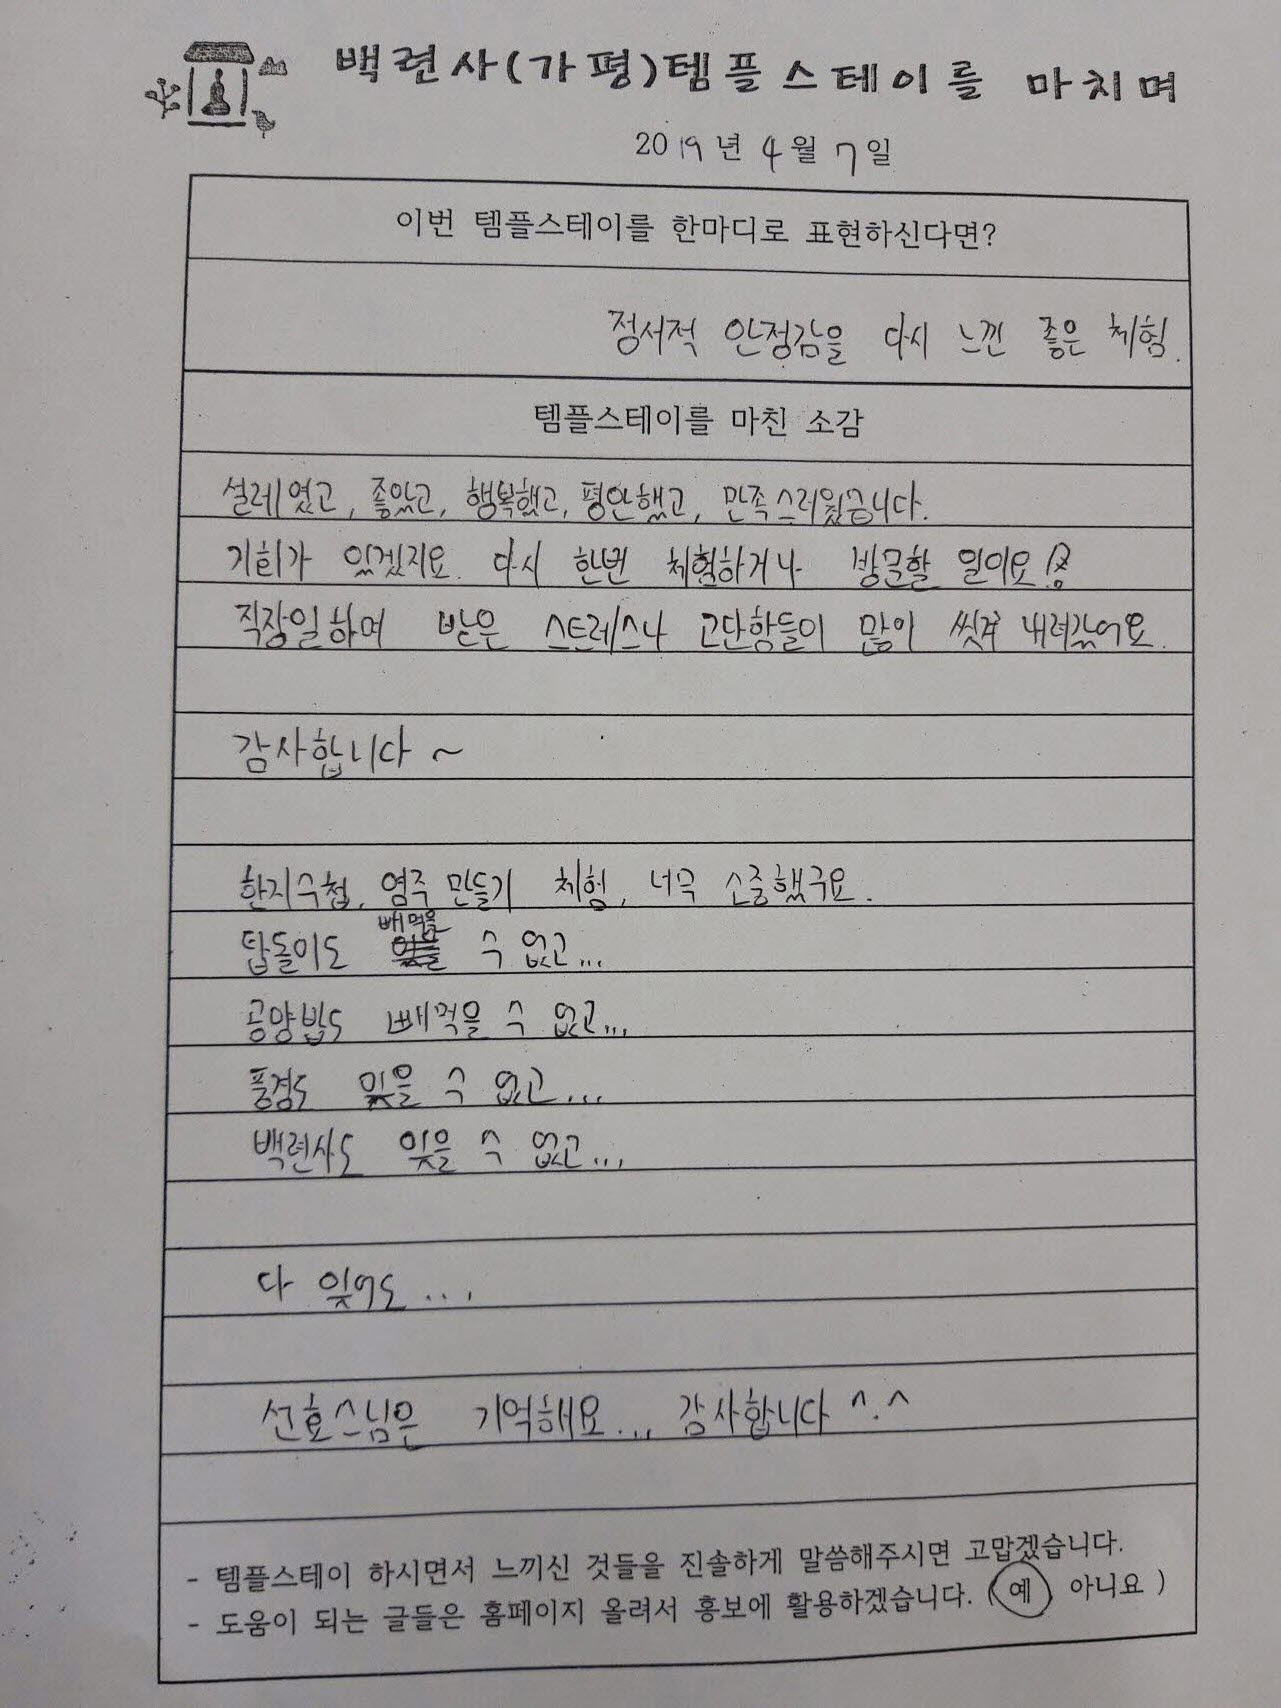 백련사(가평)템플스테이를 마치며
2019년 4월 7일
이번 템플스테이를 한마디로 표현하신다면?
정서적 안정감을 다시 느낀 좋은 체험.
템플스테이를 마친 소감
설레였고, 좋았고, 행복했고, 평안했고, 만족스러웠습니다.
기회가 있겠지요. 다시 한번 체험하거나 방문할 일이요!
직장일하며 받은 스트레스나 고단함들이 많이 씻겨 내려갔어요.
감사합니다 ~
한지수첩, 염주 만들기 체험, 너무 소중했구요.
탑돌이도 빼먹을 수 없고...
공양밥도 빼먹을 수 없고...
풍경도 잊을 수 없고...
백련사도 잊을 수 없고...
다 잊어도....
선효스님은 기억해요... 감사합니다 ^.^
- 템플스테이 하시면서 느끼신 것들을 진솔하게 말씀해주시면 고맙겠습니다.
- 도움이 되는 글들은 홈페이지 올려서 홍보에 활용하겠습니다. (예 아니요)